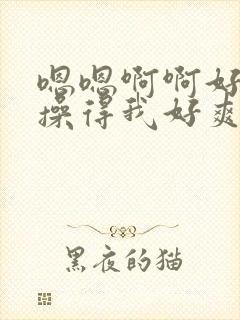 嗯嗯啊啊好
操得我好爽
黑夜的猫